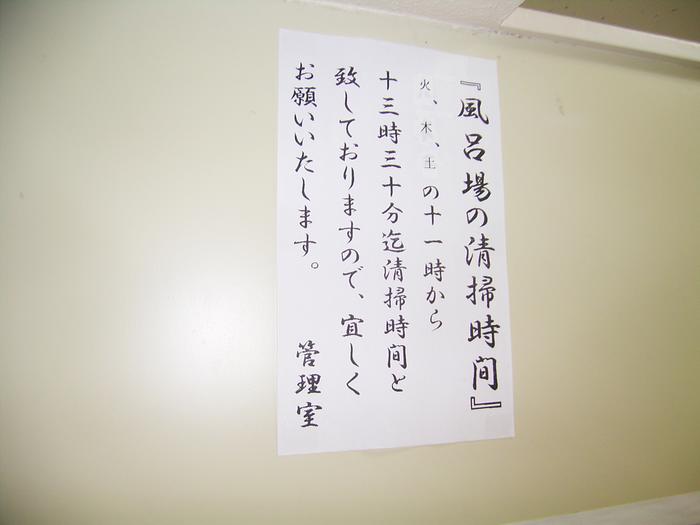 『風呂場の清掃時間』
火、木、土の十一時から
十三時三十分迄清掃時間と
致しておりますので、宜しく
お願いいたします。
管理室